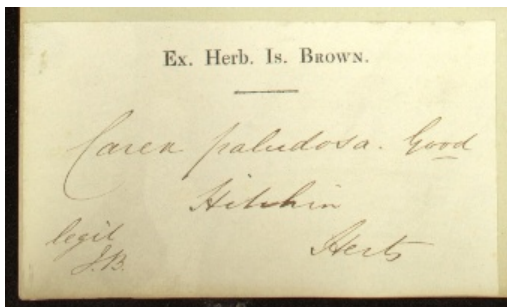 Ex. Herb. Is. Brown.
Carex paludosa. Good
Hitchin
Herts
legit
I.B.